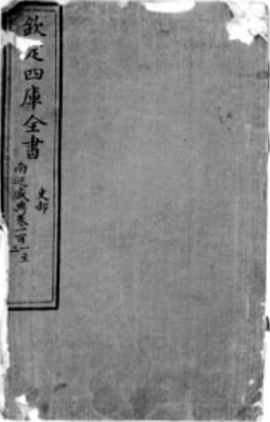 欽定四庫全書
史部
南巡盛典卷一百一至